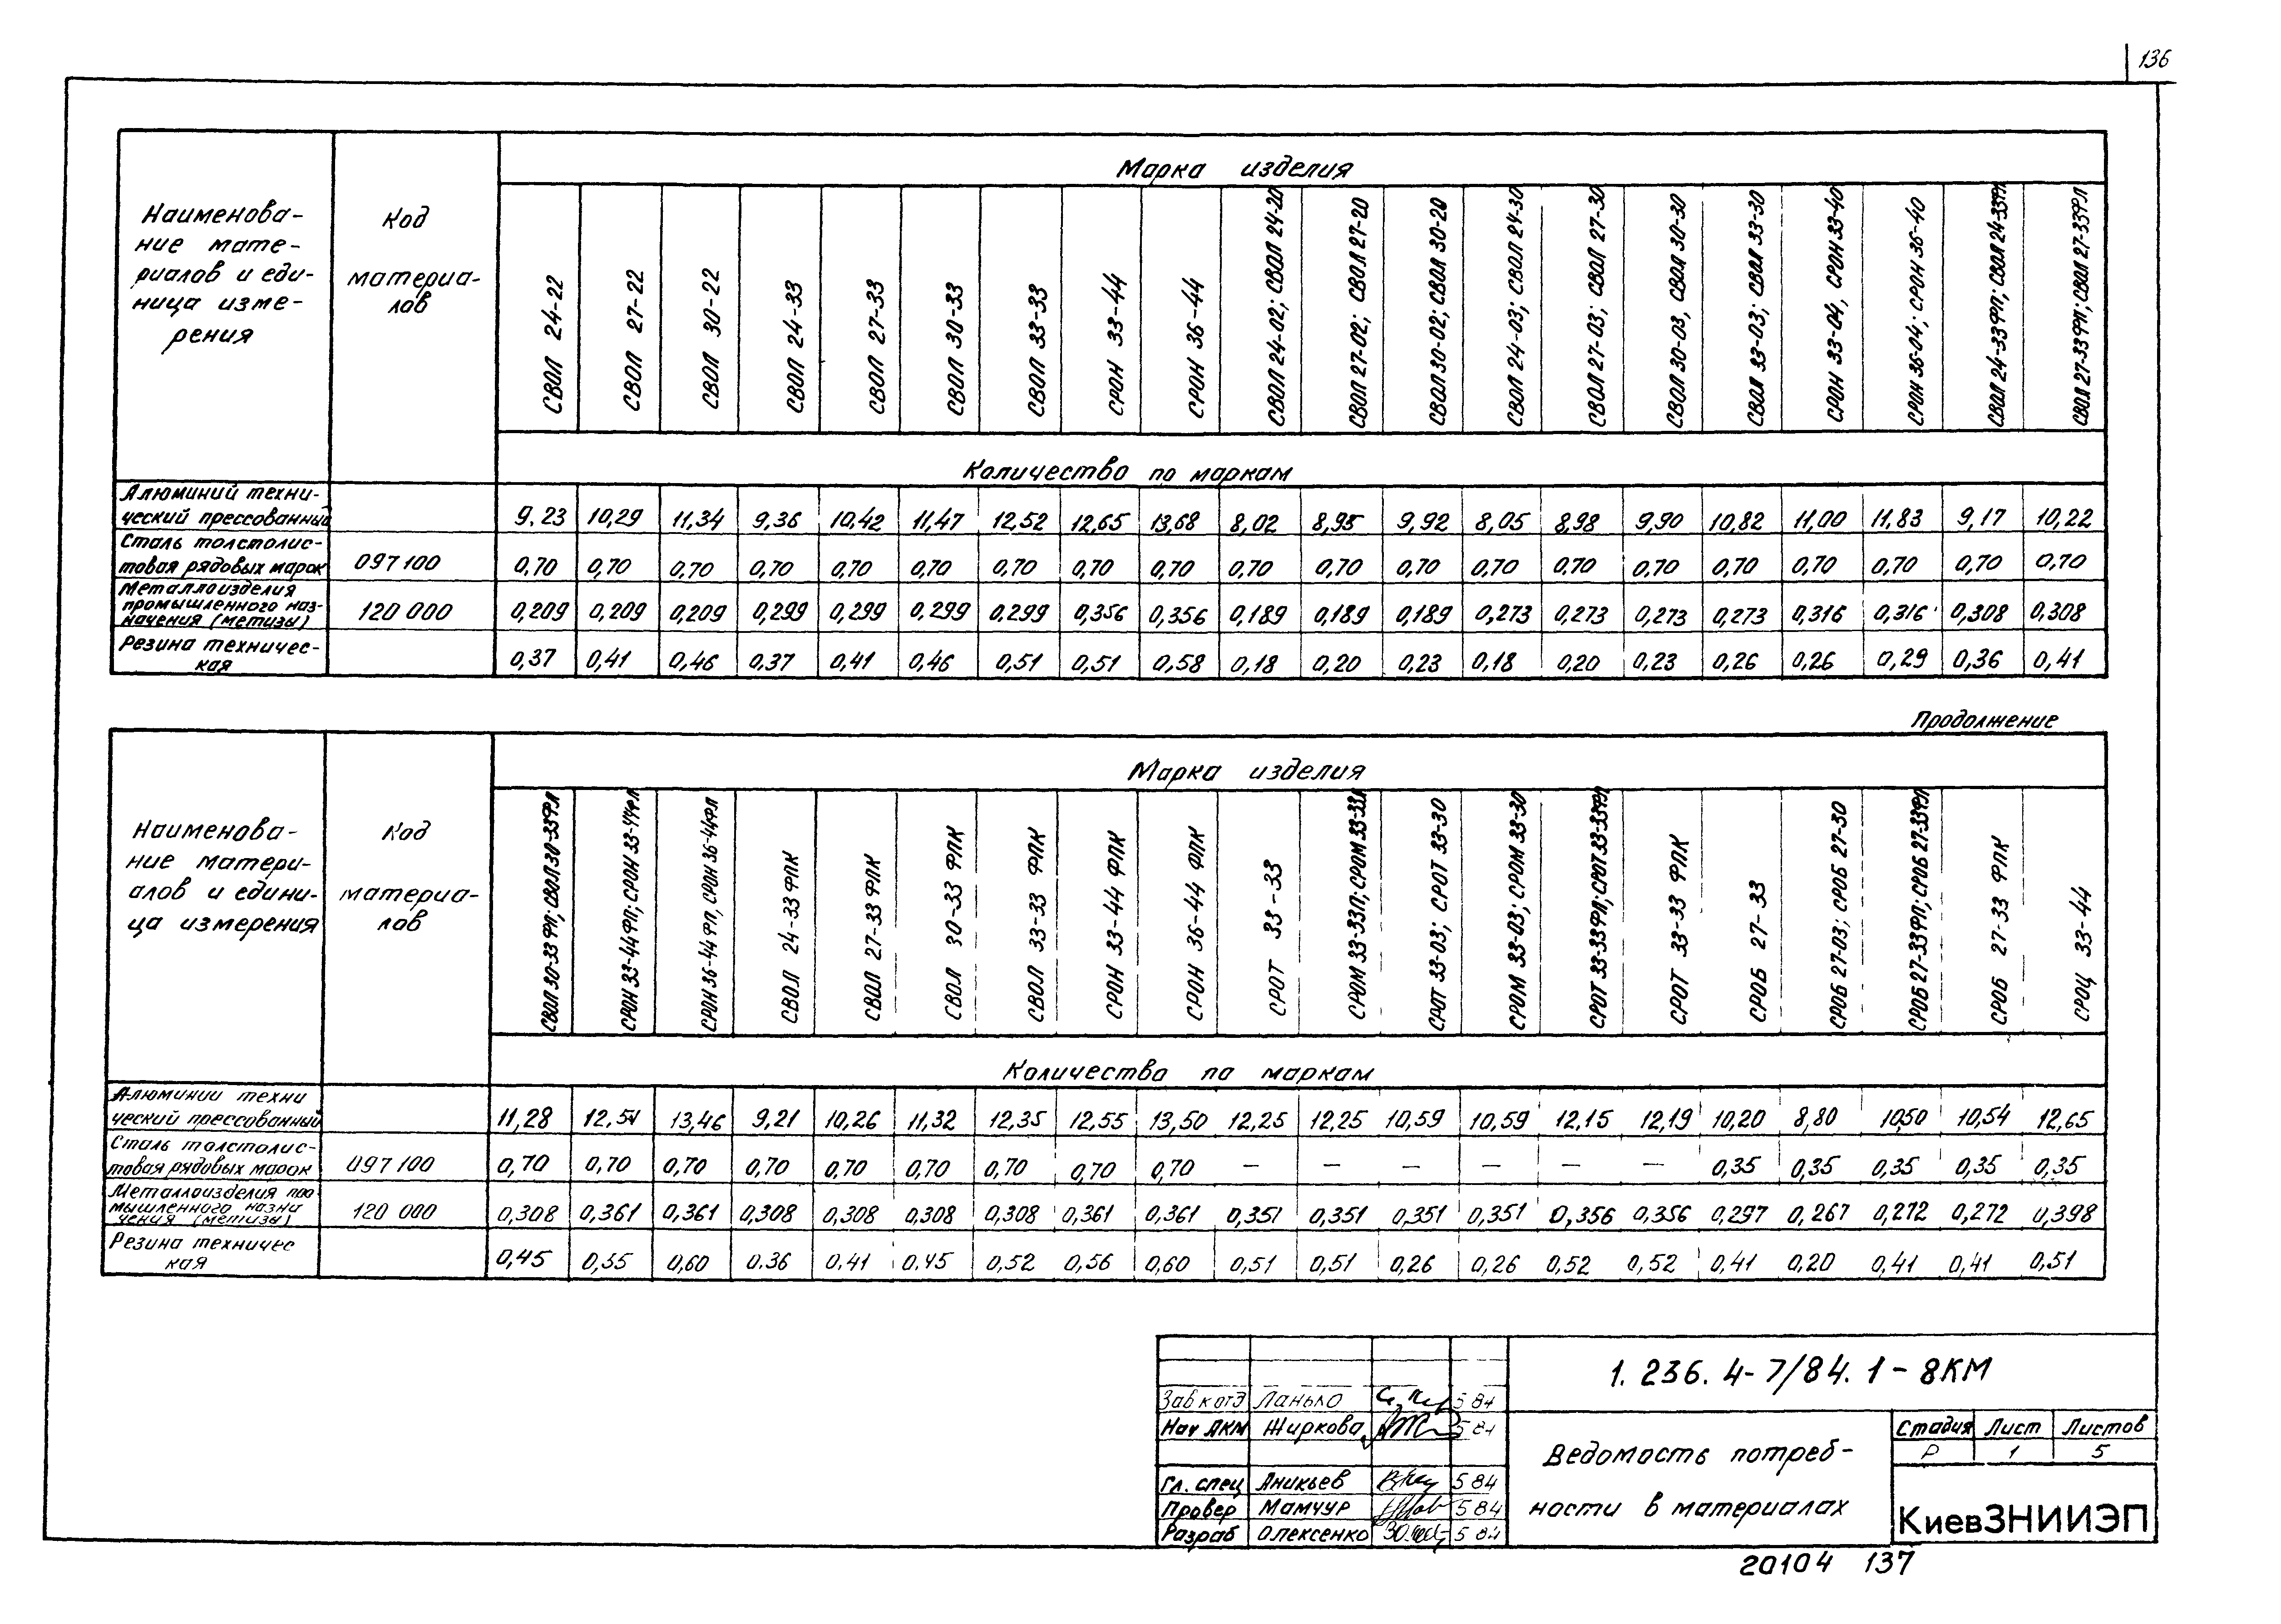 136
Марка изделия
Наименова-
ние мате-
риалов и еди-
ница изме-
рения
Код
материа-
лов
СВОЛ 24-22
СВОЛ 27-22
СВОЛ 30-22
СВОЛ 24-33
СВОЛ 27-33
СВОЛ 30-33
СВОЛ 33-33
СРОН 33-44
СРОН 36-44
СВОЛ 24-02; СВОЛ 24-20
СВОЛ 27-02; СВОЛ 27-20
СВОЛ 30-02; СВОЛ 30-20
СВОЛ 24-03; СВОЛ 24-30
СВОЛ 27-03; СВОЛ 27-30
СВОЛ 30-03, СВОЛ 30-30
СВОЛ 33-03; СВОЛ 33-30
СРОН 33-04, СРОН 33-40
СРОН 36-04; СРОН 36-40
СВОЛ 24-33ФП; СВОЛ 24-33ФЛ
СВОЛ 27-33ФП; СВОЛ 27-33ФЛ
Количество по маркам
Алюминий техни-
ческий прессованный
9,23 10,29 11,34 9,36 10,42 11,47 12,52 12,65 13,68 8,02 8,95 9,92 8,05 8,98 9,90 10,82 11,00 11,83 9,17 10,22
Сталь толстолис-
товая рядовых марок 097100 0,70 0,70 0,70 0,70 0,70 0,70 0,70 0,70 0,70 0,70 0,70 0,70 0,70 0,70 0,70 0,70 0,70 0,70 0,70 0,70
Металлоизделия
промышленного наз-
начения (метизы) 120 000 0,209 0,209 0,209 0,299 0,299 0,299 0,299 0,356 0,356 0,189 0,189 0,189 0,273 0,273 0,273 0,273 0,316 0,316 0,308 0,308
Резина техничес-
кая 0,37 0,41 0,46 0,37 0,41 0,46 0,51 0,51 0,58 0,18 0,20 0,23 0,18 0,20 0,23 0,26 0,26 0,29 0,36 0,41
Продолжение
Марка изделия
Наименова-
ние матери-
алов и едини-
ца измерения
Код
материа-
лов
СВОЛ 30-33ФП; СВОЛ 30-33ФЛ
СРОН 33-44ФП; СРОН 33-44ФЛ
СРОН 36-44ФП, СРОН 36-44ФЛ
СВОЛ 24-33 ФПК
СВОЛ 27-33 ФПК
СВОЛ 30-33 ФПК
СВОЛ 33-33 ФПК
СРОН 33-44 ФПК
СРОН 36-44 ФПК
СРОТ 33-33
СРОМ 33-33П; СРОМ 33-33Л
СРОТ 33-03; СРОТ 33-30
СРОМ 33-03; СРОМ 33-30
СРОТ 33-33ФП; СРОТ 33-33ФЛ
СРОТ 33-33 ФПК
СРОБ 27-33
СРОБ 27-03; СРОБ 27-30
СРОБ 27-33ФП; СРОБ 27-33ФЛ
СРОБ 27-33 ФПК
СРОЦ 33-44
Количество по маркам
Алюминии техни
ческий прессованный
11,28 12,51 13,46 9,21 10,26 11,32 12,35 12,55 13,50 12,25 12,25 10,59 10,59 12,15 12,19 10,20 8,80 10,50 10,54 12,65
Сталь толстолис-
товая рядовых марок 097100 0,70 0,70 0,70 0,70 0,70 0,70 0,70 0,70 0,70 — — — — — — 0,35 0,35 0,35 0,35 0,35
Металлоизделия про
мышленного назна
чения (метизы) 120 000 0,308 0,361 0,361 0,308 0,308 0,308 0,308 0,361 0,361 0,351 0,351 0,351 0,351 0,356 0,356 0,297 0,267 0,272 0,272 0,398
Резина техничес
кая 0,45 0,55 0,60 0.36 0,41 0.45 0,52 0,56 0,60 0,51 0,51 0,26 0,26 0,52 0,52 0,41 0,20 0,41 0,41 0,51
1. 236. 4-7/84. 1-8КМ
Зав котд Ланько 5 84
Нач АКМ Жиркова 5 84
Гл. спец Аникьев 5 84
Провер Мамчур 5 84
Разраб Олексенко 5 84
Ведомость потреб-
ности в материалах
Стадия Лист Листов
Р 1 5
КиевЗНИИЭП
20104 137